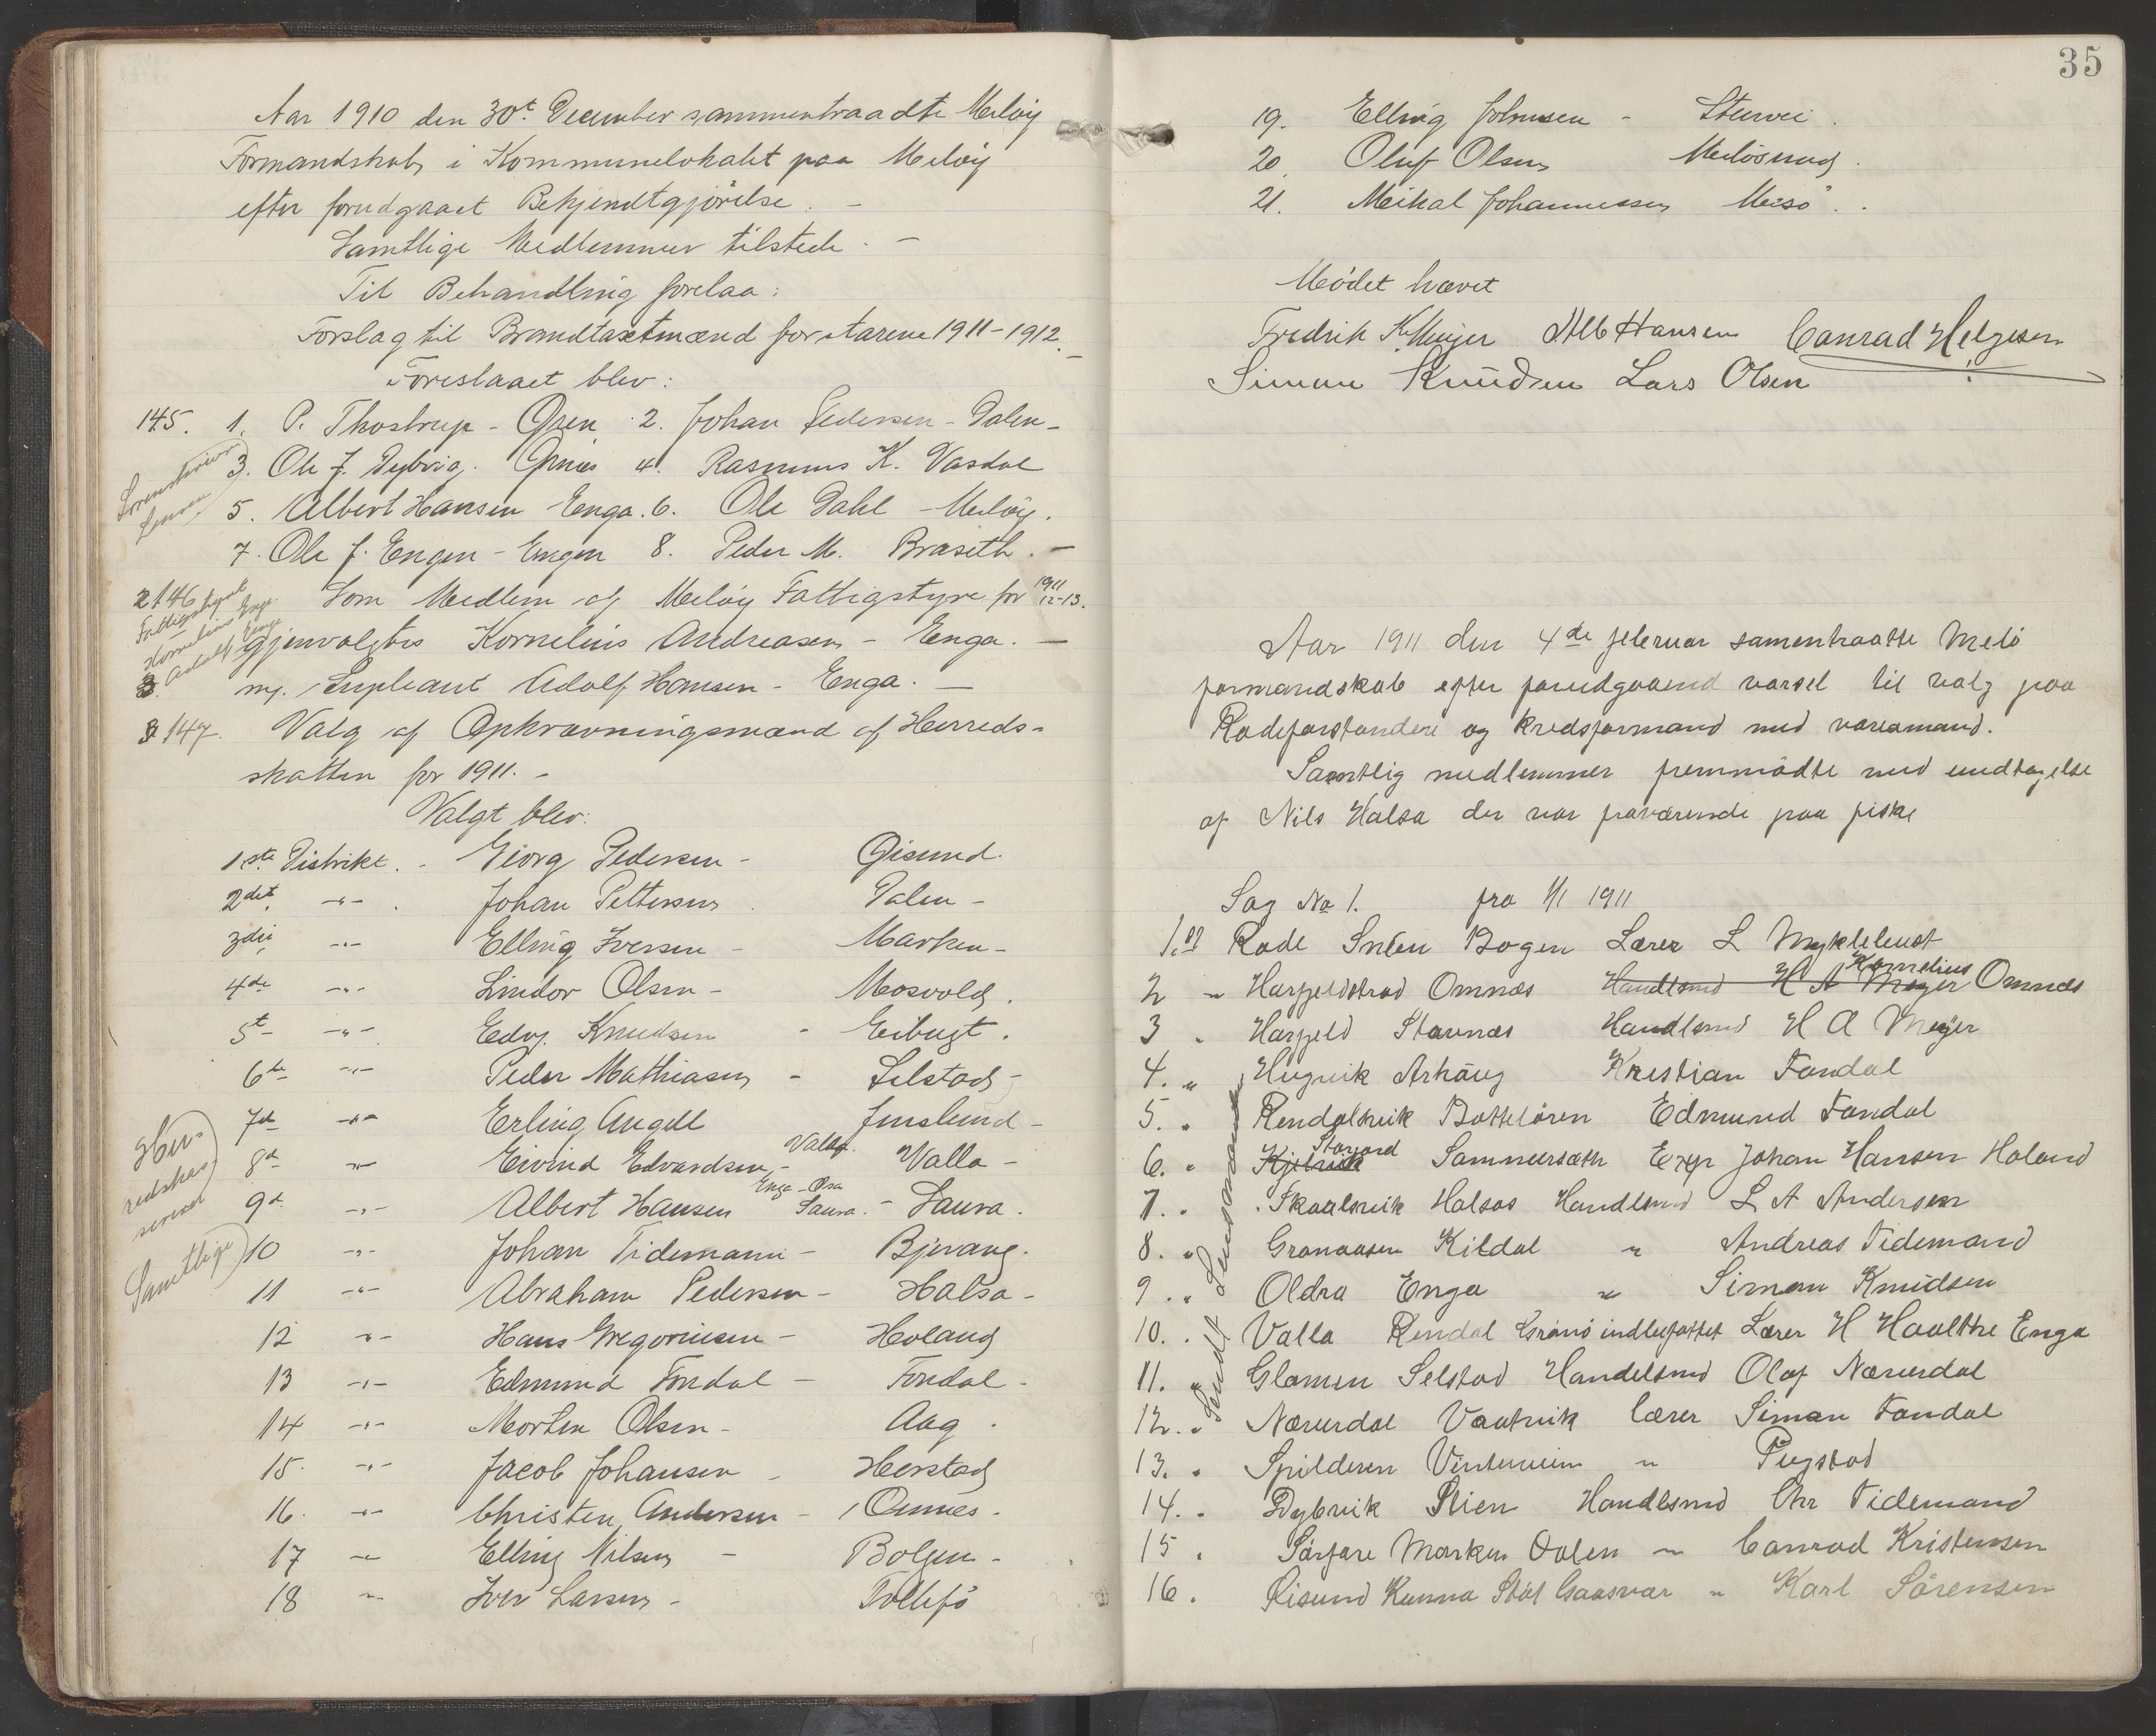 Aar 1910 den 30t December sammentraadte Meløy
Formandskab i Kommunelokalet paa Meløy
efter forudgaaet Bekjendtgjörelse. -
Samtlige Medlemmer tilstede. -
Til Behandling forelaa:
Forslag til Brandtaxtmænd for Aarene 1911-1912.
Foreslaaet blev:
145. 1. P. Thostrup - Ørnen 2. Johan Pedersen - Dalen -
3. Ole J. Dybvig. Grnæs 4. Rasmus K. Vasdal
5. Albert Hansen Enga. 6. Ole Dahl - Meløy.
7. Ole J. Engen - Engen 8. Peder M. Braseth. -
146 Som Medlem af Meløy Fattigstyre for 1911 12-13.
Fattigstyret
Kornelius Enga
Adolf Enga
gjenvalgtes Kornelius Andreasen - Enga. -
ny Supleant Adolf Hansen - Enga. -
147. Valg af Opkrævningsmænd af Herreds-
skatten for 1911. -
Valgt blev:
1ste Distrikt. - Georg Pedersen - Gisund.
2det -"- Johan Pettersen Dalen -
3die -"- Elling Iversen - Marken -
4de -"- Lindor Olsen - Mosvold.
5te -"- Edv. Knudsen - Eibugt.
6te -"- Peder Mathiasen - Selstad -
7de -"- Erling Angell Jenslund -
8de -"- Eivind Edvardsen - Valla. Valla -
9de -"- Albert Hansen Enga - Osa Saura. - Saura.
10 -"- Johan Tidemann - Bjerang.
11 -"- Abraham Pedersen - Halsa -
12 -"- Hans Gregoriusen - Holand
13 -"- Edmund Fondal - Fondal -
14 -"- Morten Olsen - Aag.
15. -"- Jacob Johansen - Herstad
16. -"- Christen Andersen - Ømnes.
17 -"- Elling Nilsen - Bolgen -
18 -"- Iver Larsen - Tollefö
Her-
redskas
sereren
Samtlige
35
19. Elling Johnsen - Stenvei.
20. Oluf Olsen Meløsund.
21. Meikal Johannessen Mesö..
Mödet hævet
Fredrik K. Meyer Alb Hansen Conrad Helgesen
Simon Knudsen Lars Olsen
Aar 1911 den 4de februar samentraatte Melö
formandskab efter forudgaaend varsel til valg paa
Rodeforstandere og kredsformand med varamand.
Samtlig medlemmer fremmödte med undtagelse
af Nils Halsa der var fraværende paa fiske
Sag No 1. fra 1/1 1911
1. Rode Bogen Lærer L Myklebust
2 " Harfjeldstrad Ömnæs Handlsmd H A Meyer Kornelius Ömnæs
3 " Harfjeld Stavnæs Handlsmd H A Meyer
4. " Arhaug Kristian Fondal
5. " Rendalsvik Bottelören Edmund Fondal
6. " Kjelvik Storjord Sommersæth Exp Johan Hansen Holand
7. " Skaalsvik Halsos Handlsmd L A Andersen
8. " Gronaasen Kildal " Andreas Tidemand
9. " Oldra Enga " Simon Knudsen
10. " Valla Rendal Grönö indbefattet Lærer H Haaltke Enga
11. " Glomen Selstad Handelsmd Olaf Næverdal
12. " Næverdal Vaatvik lærer Simon Fondal
13. " Spilderen Vinterveien "
14. " Dybvik Stien Handlsmd Chr Tidemand
15 " Sörfore Marken Dalen " Conrad Kristensen
16. Risund Kunna Stöt Gaasvær " Karl Sörensen
Sendt Lensmanden